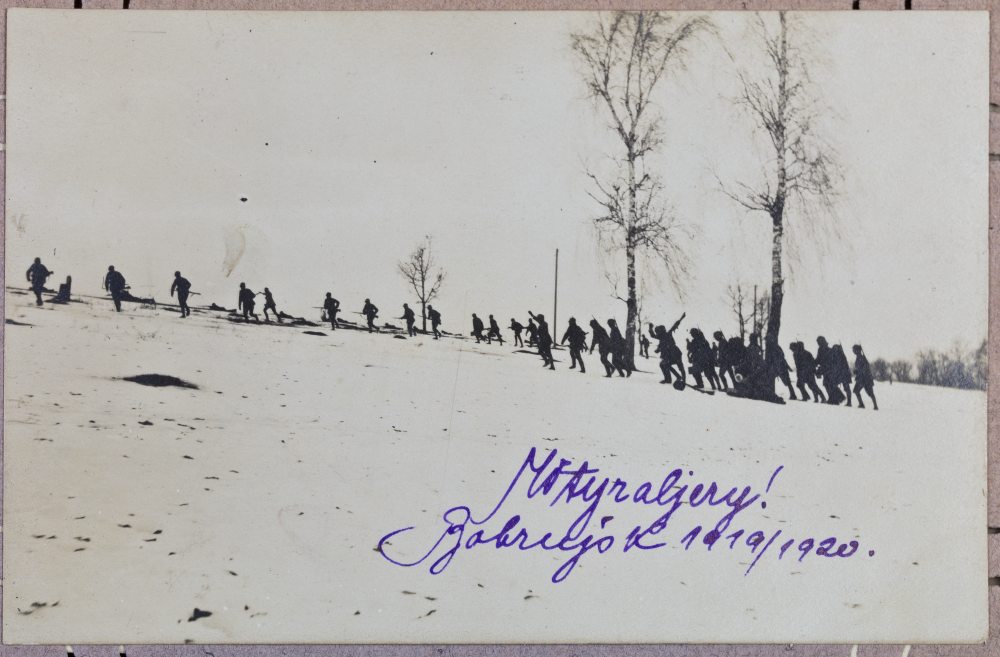 Mityraljery!
Bobrujsk 1919/1920.